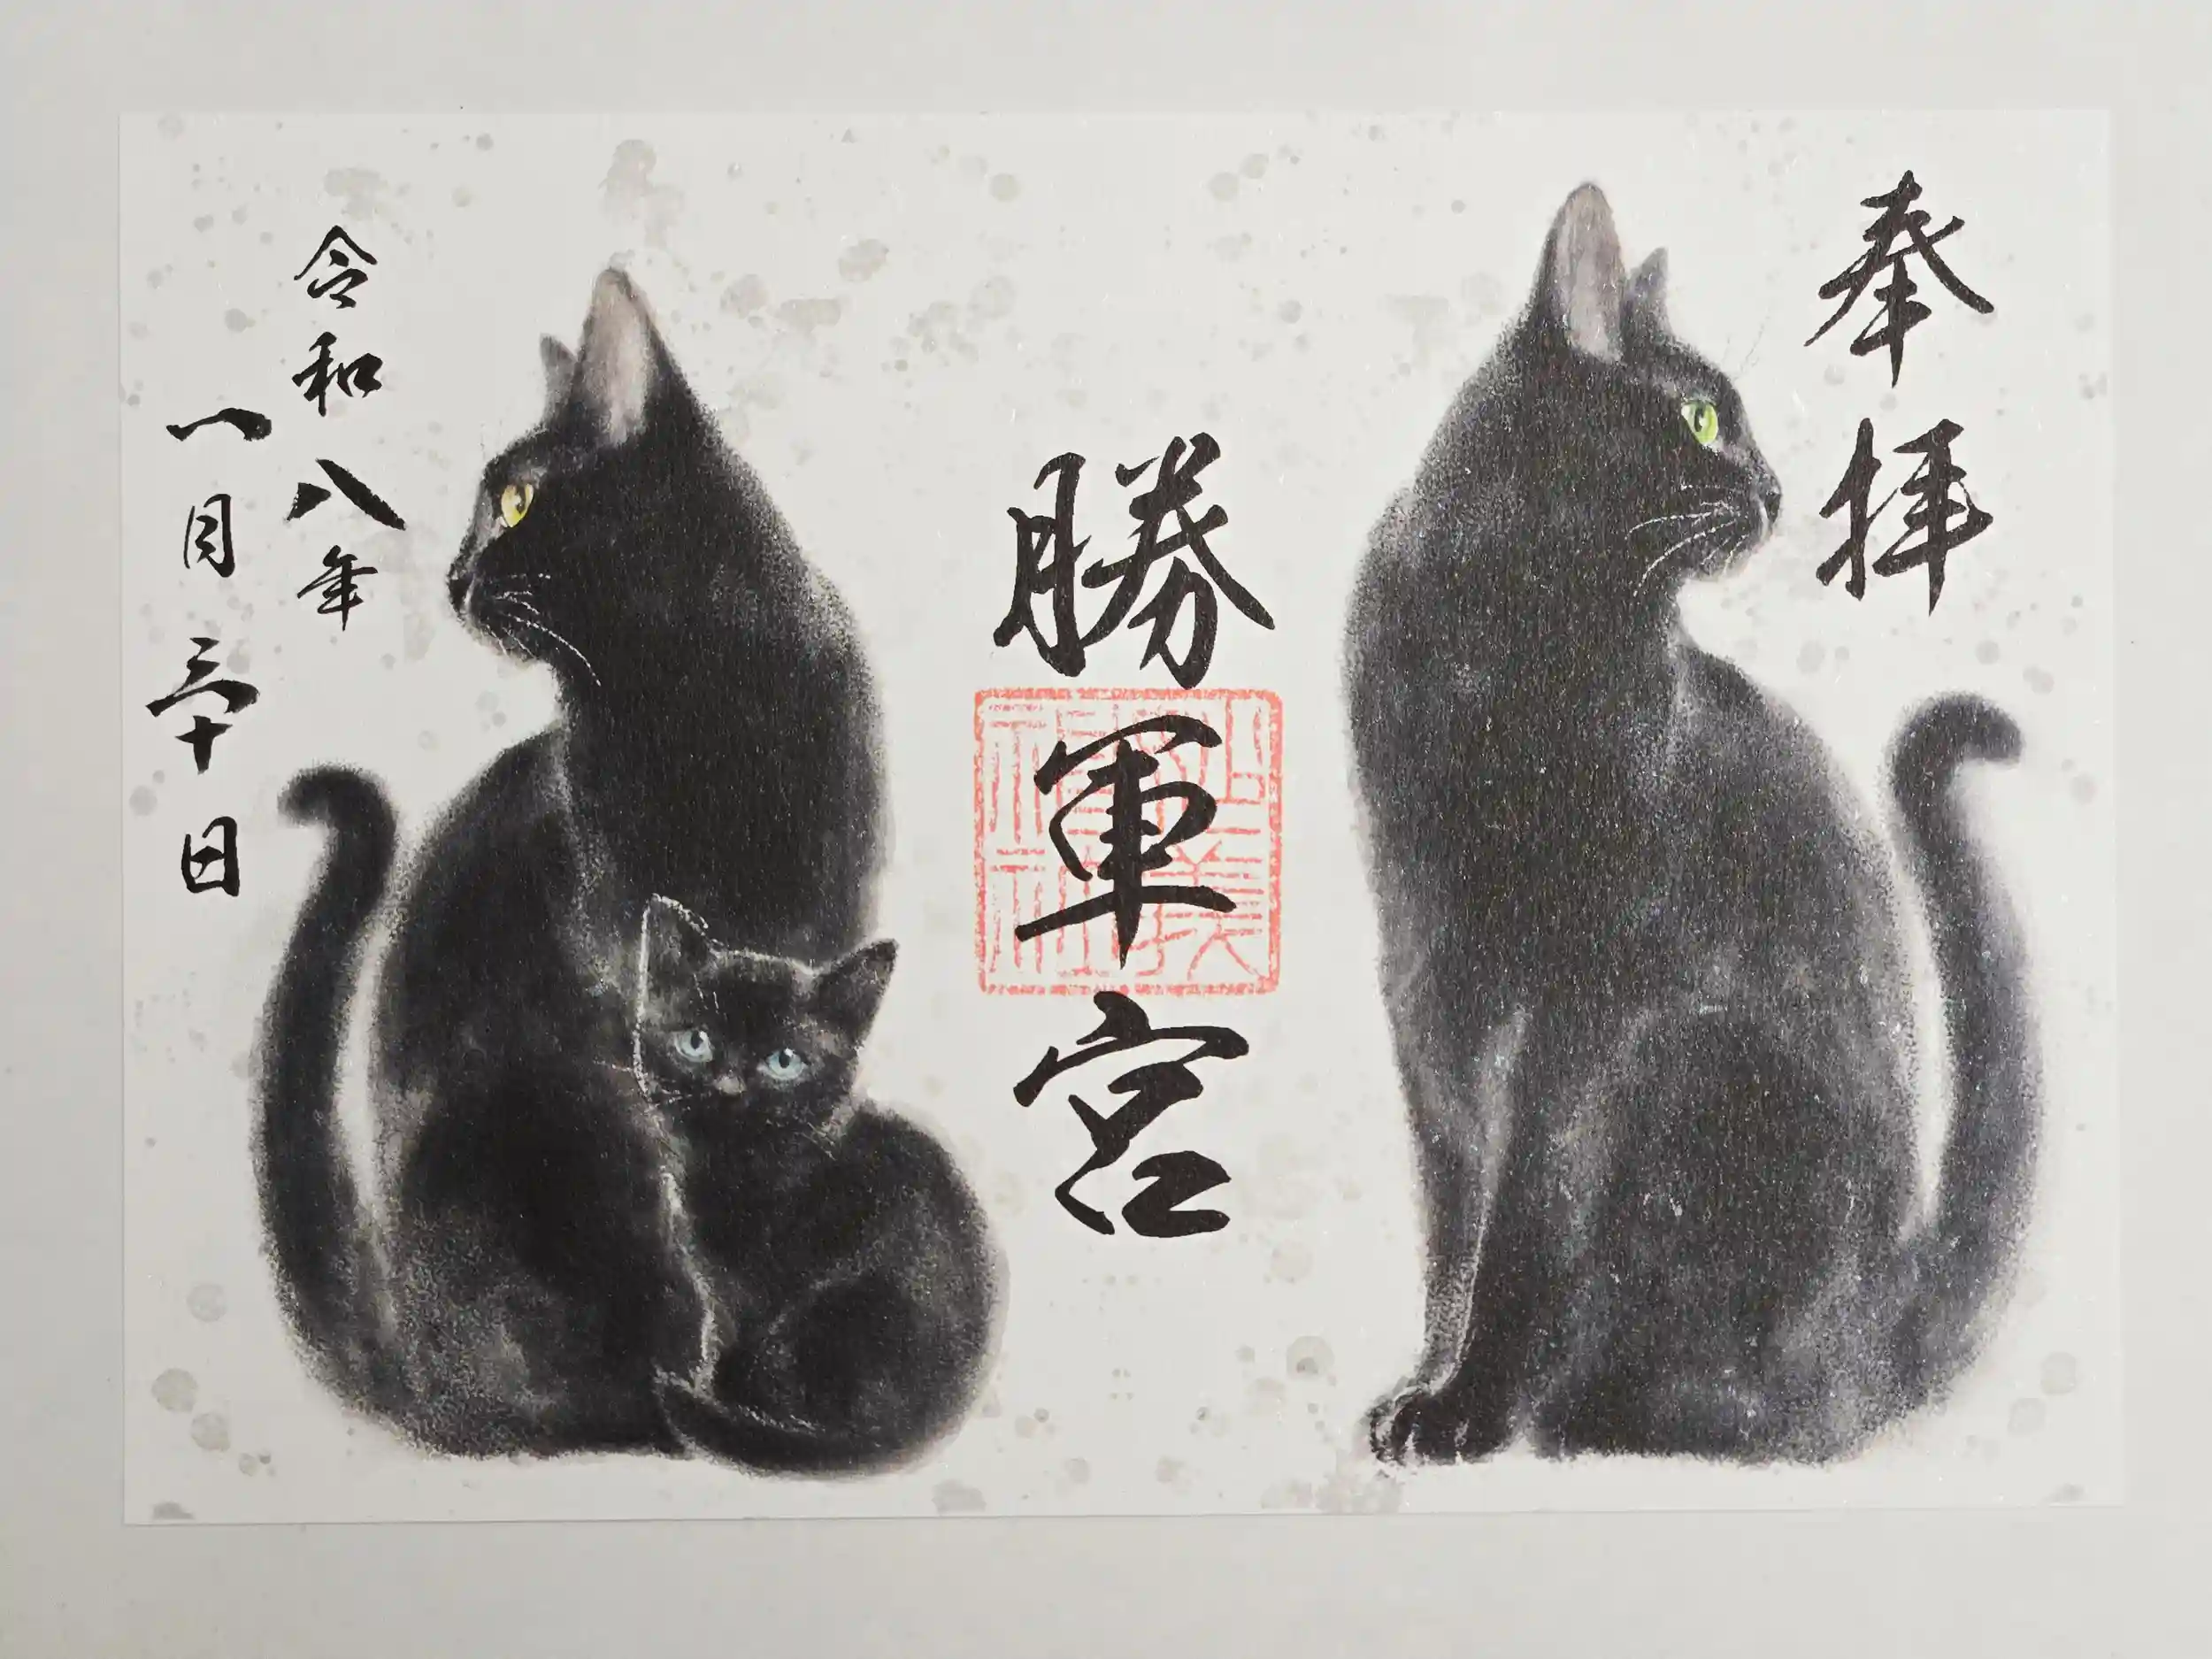 奉拝
勝軍宮
令和八年
一月三十日